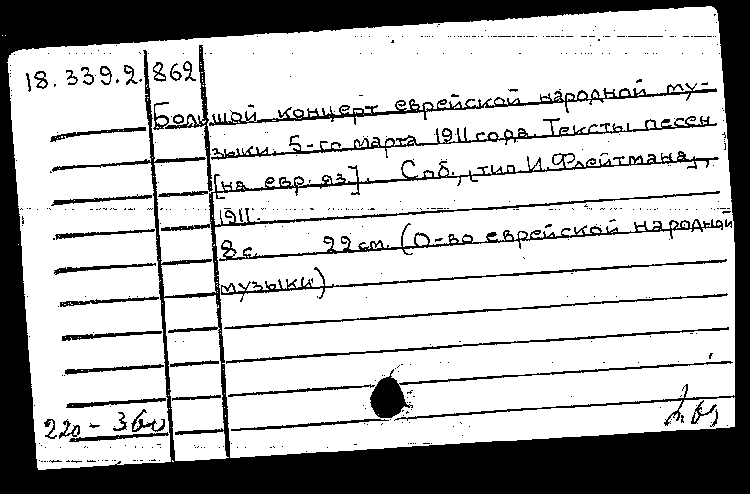 18.339.2.862
Большой концерт еврейской народной му-
зыки. 5-го марта 1911 года. Тексты песен
[на евр. яз.]. Спб., тип И. Флейтмана,
1911.
8 с. 22 см. (О-во еврейской народной
музыки)
220 -